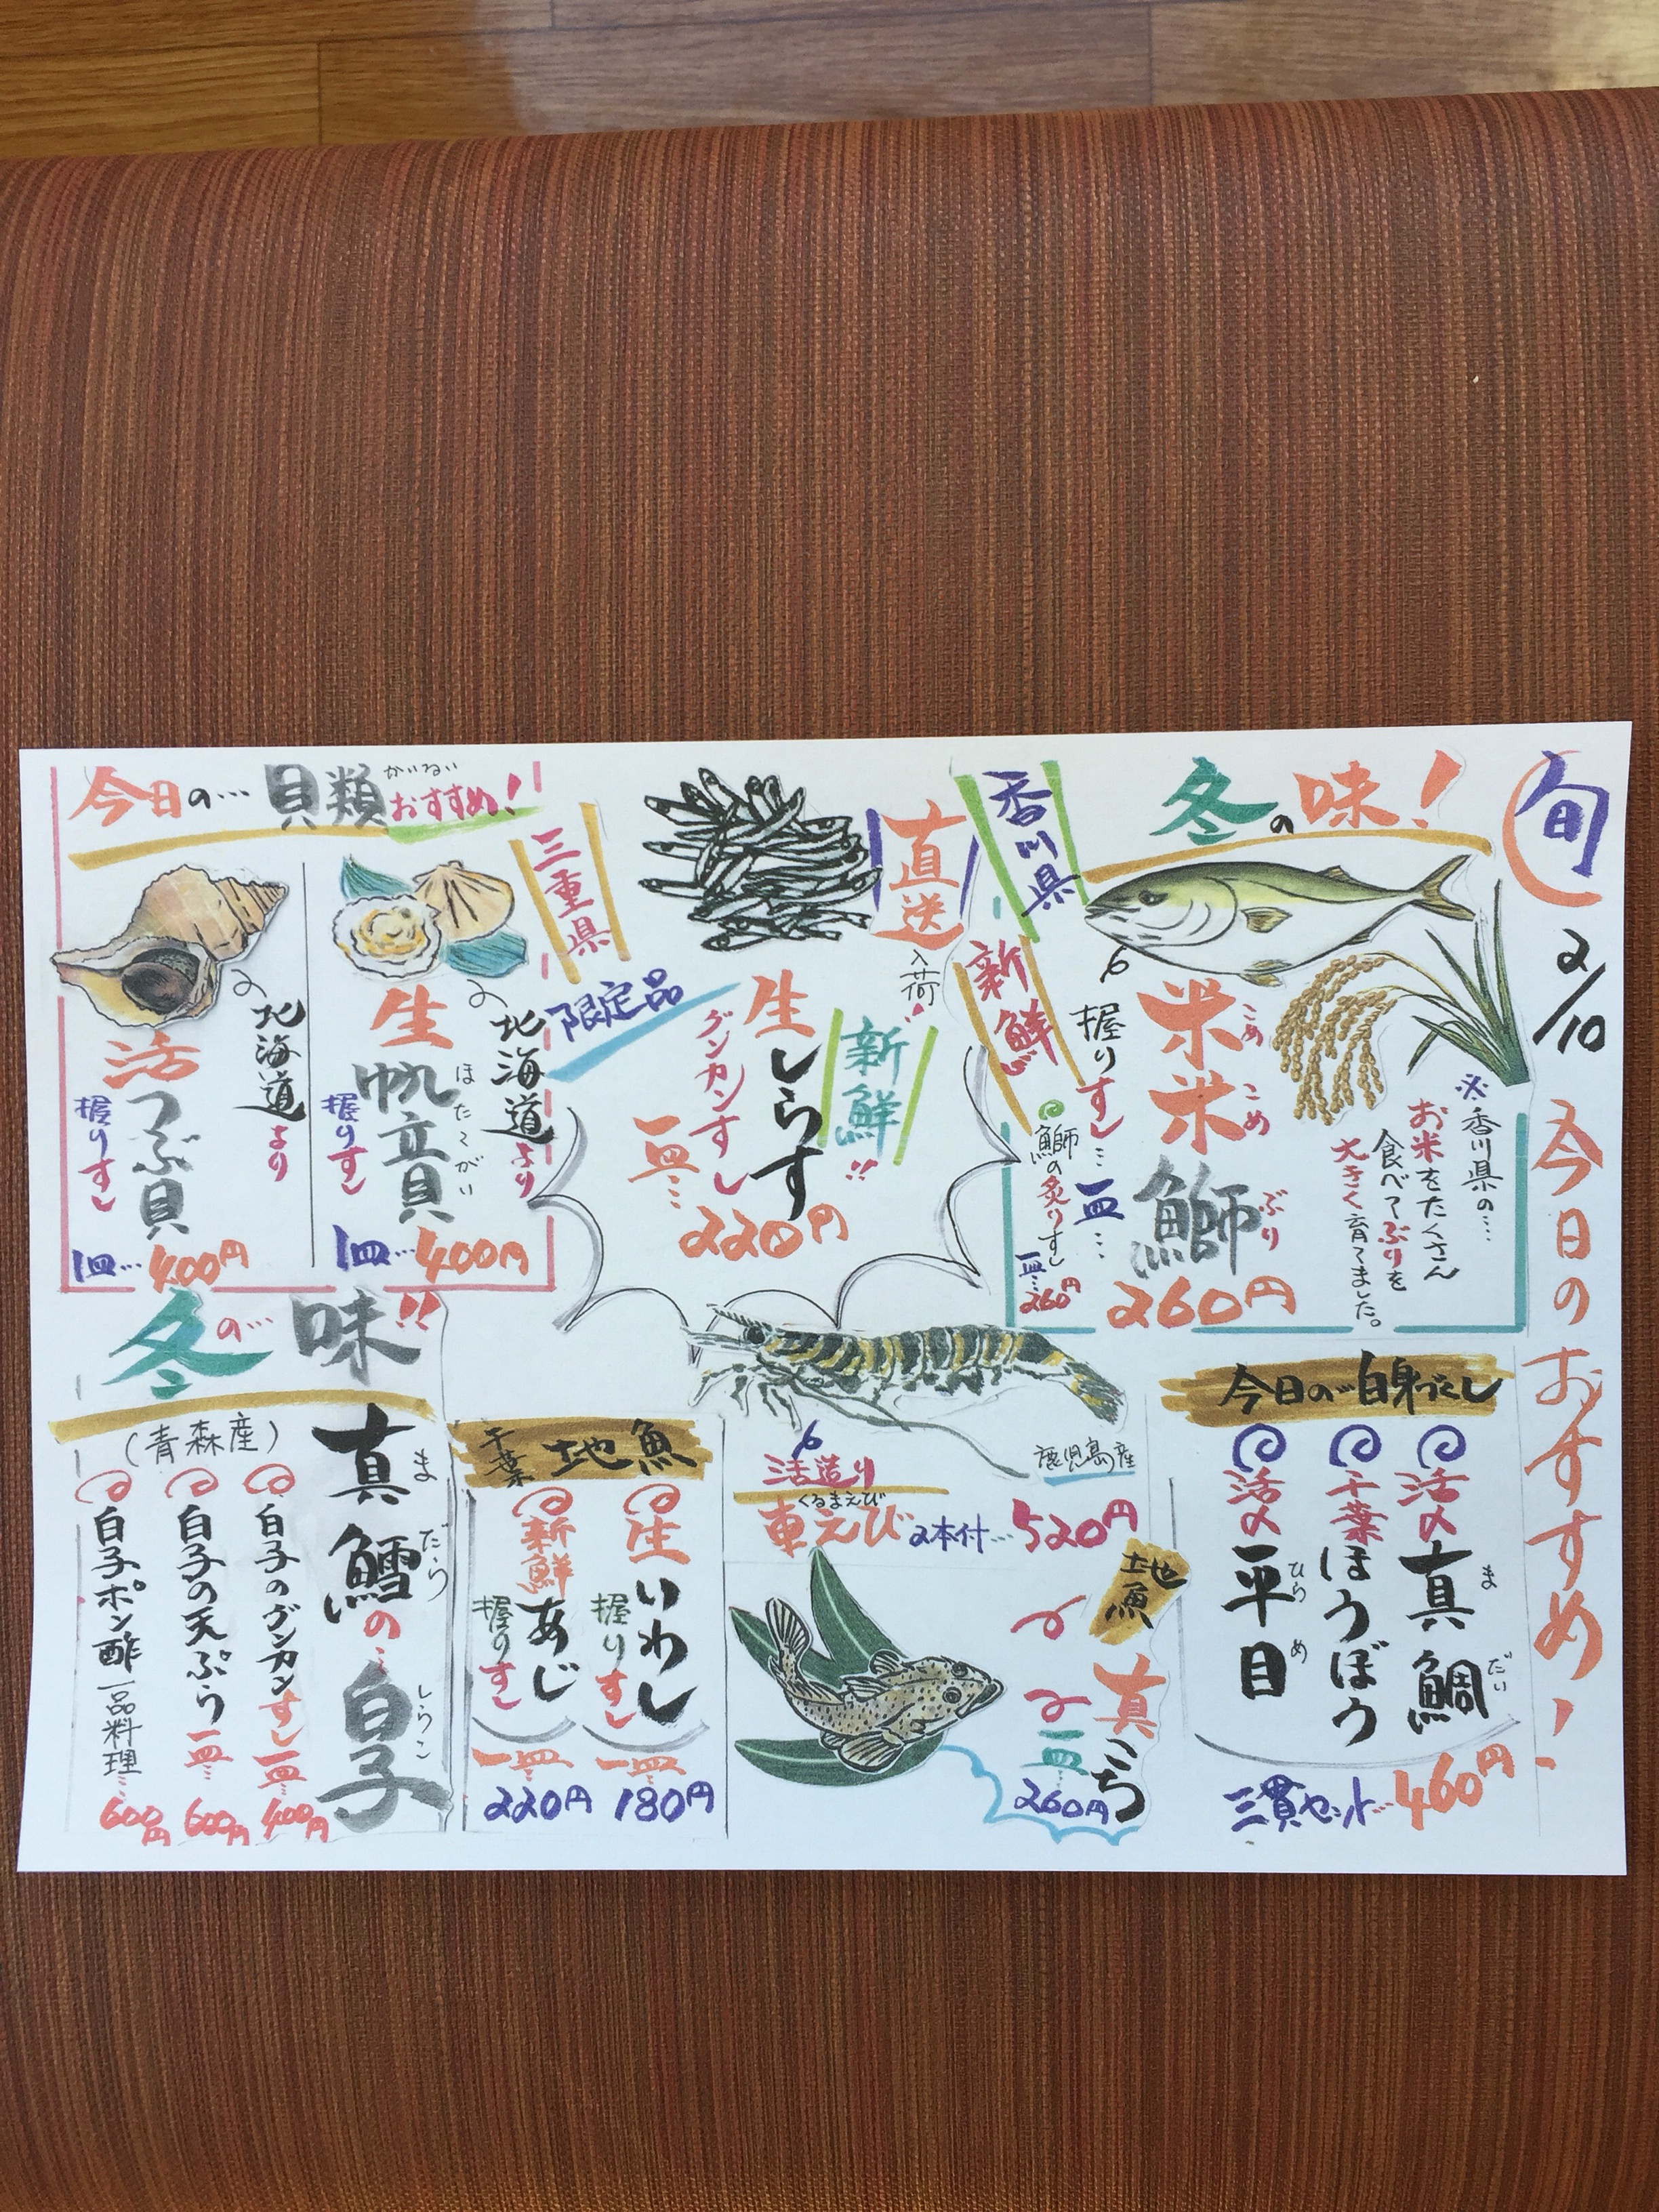 旬
2/10
今日のおすすめ!
冬の味!
香川県
新鮮!!
米米鰤
こめ
こめ
ぶり
握りすし…一皿…
260円
※香川県の…
お米をたくさん
食べてぶりを
大きく育てました。
鰤の炙りすし
一皿…260円
直送
入荷!!
生しらす
新鮮!!
グンカンすし
一皿…
220円
三重県
限定品
今日の…貝類おすすめ!
かいるい
北海道より
生帆立貝
ほたてがい
握りすし
1皿…400円
北海道より
活つぶ貝
握りすし
1皿…400円
今日の…白身づくし
活〆真鯛
まだい
千葉ほうぼう
活〆平目
ひらめ
三貫セット…460円
鹿児島産
活造り
くるまえび
車えび2本付…520円
地魚
真こち
一皿
260円
千葉地魚
生いわし
握りすし
一皿…
180円
新鮮あじ
握りすし
一皿…
220円
冬の…味!!
真鱈の…白子
まだら
しらこ
(青森産)
白子のグンカンすし一皿…400円
白子の天ぷら一皿…600円
白子ポン酢一品料理…600円